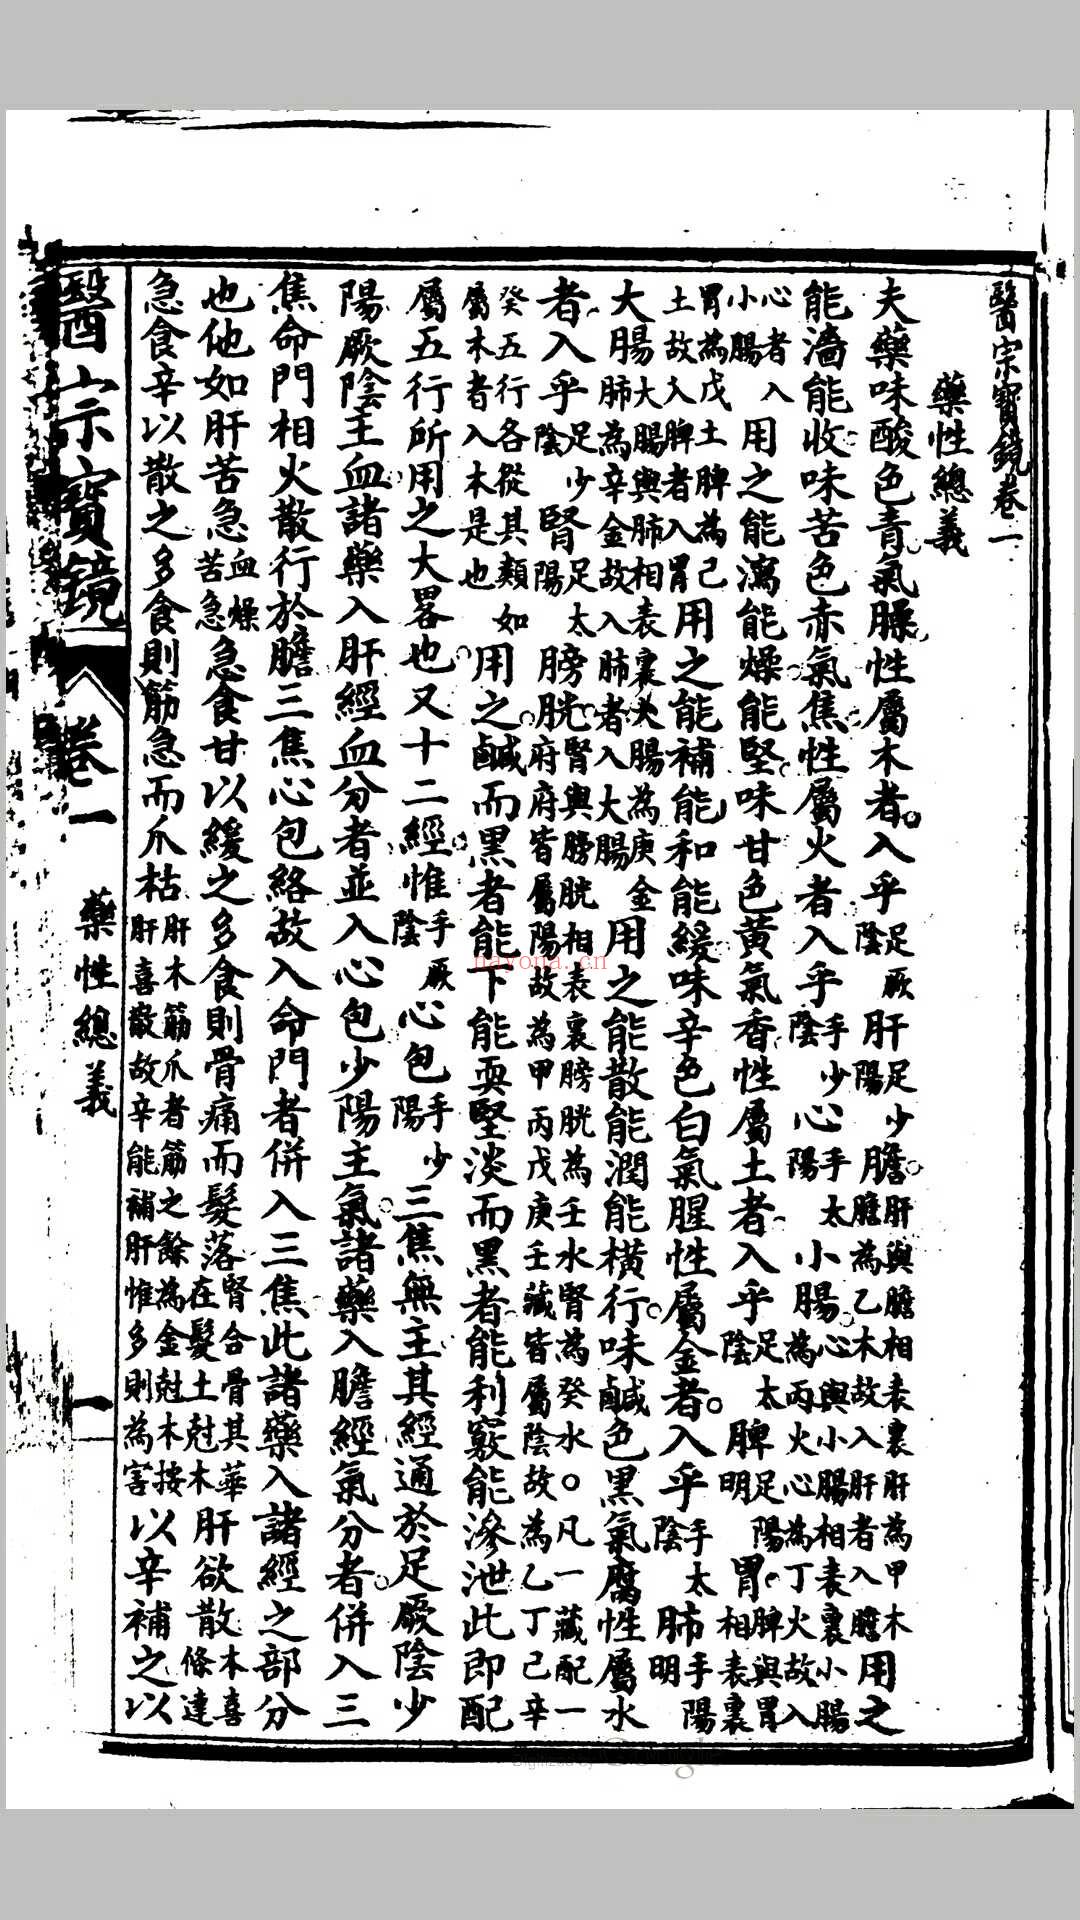 醫宗寳鏡卷一
藥性總義
夫藥味酸色青氣臊性屬木者入乎足厥陰肝足少陽膽肝與膽相表裏肝為甲木膽為乙木故入肝者入膽用之
能濇能收味苦色赤氣焦性屬火者入乎手少陰心手太陽小腸心與小腸相表裏小腸為丙火心為丁火故入
心者入小腸用之能瀉能燥能堅味甘色黄氣香性屬土者入乎足太陰脾足陽明胃脾與胃相表裏
胃為戊土脾為己土故入脾者入胃用之能補能和能緩味辛色白氣腥性屬金者入乎手太陰肺手陽明
大腸大腸與肺相表裏大腸為庚金肺為辛金故入肺者入大腸用之能散能潤能橫行味鹹色黑氣腐性屬水
者入乎足少陰腎足太陽膀胱腎與膀胱相表裏膀胱為壬水腎為癸水○凡一藏配一府府皆屬陽故為甲丙戊庚壬藏皆屬陰故為乙丁己辛
癸五行各從其類如屬木者入木是也用之鹹而黑者能下能耎堅淡而黑者能利竅能滲泄此即配
屬五行所用之大畧也又十二經惟手厥陰心包手少陽三焦無主其經通於足厥陰少
陽厥陰主血諸藥入肝經血分者並入心包少陽主氣諸藥入膽經氣分者併入三
焦命門相火散行於膽三焦心包絡故入命門者併入三焦此諸藥入諸經之部分
也他如肝苦急血燥苦急急食甘以緩之多食則骨痛而髮落腎合骨其華在髮土尅木肝欲散木喜條達
急食辛以散之多食則筋急而爪枯肝木筋爪者筋之餘為金尅木按肝喜散故辛能補肝惟多則為害以辛補之以
醫宗寳鏡 卷一 藥性總義 一
nayona.cn
Digitized by Google